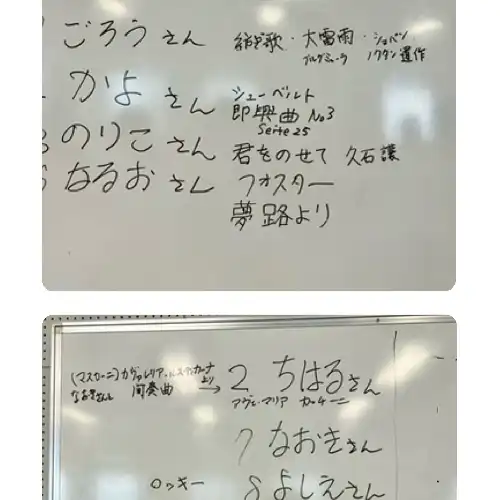 ごろうさん 大雷雨・ショパン
ブルグミュラー ノクターン 遺作
かよさん シューベルト
即興曲 No3
Seite 25
のりこさん 君をのせて 久石譲
なるおさん フォスター
夢路より
(マスカーニ) カヴァレリア・ルスティカーナ より → 2 ちはるさん
なおきさん 間奏曲
アヴェ・マリア カッチーニ
7 なおきさん
ロッキー 8 よしえさん